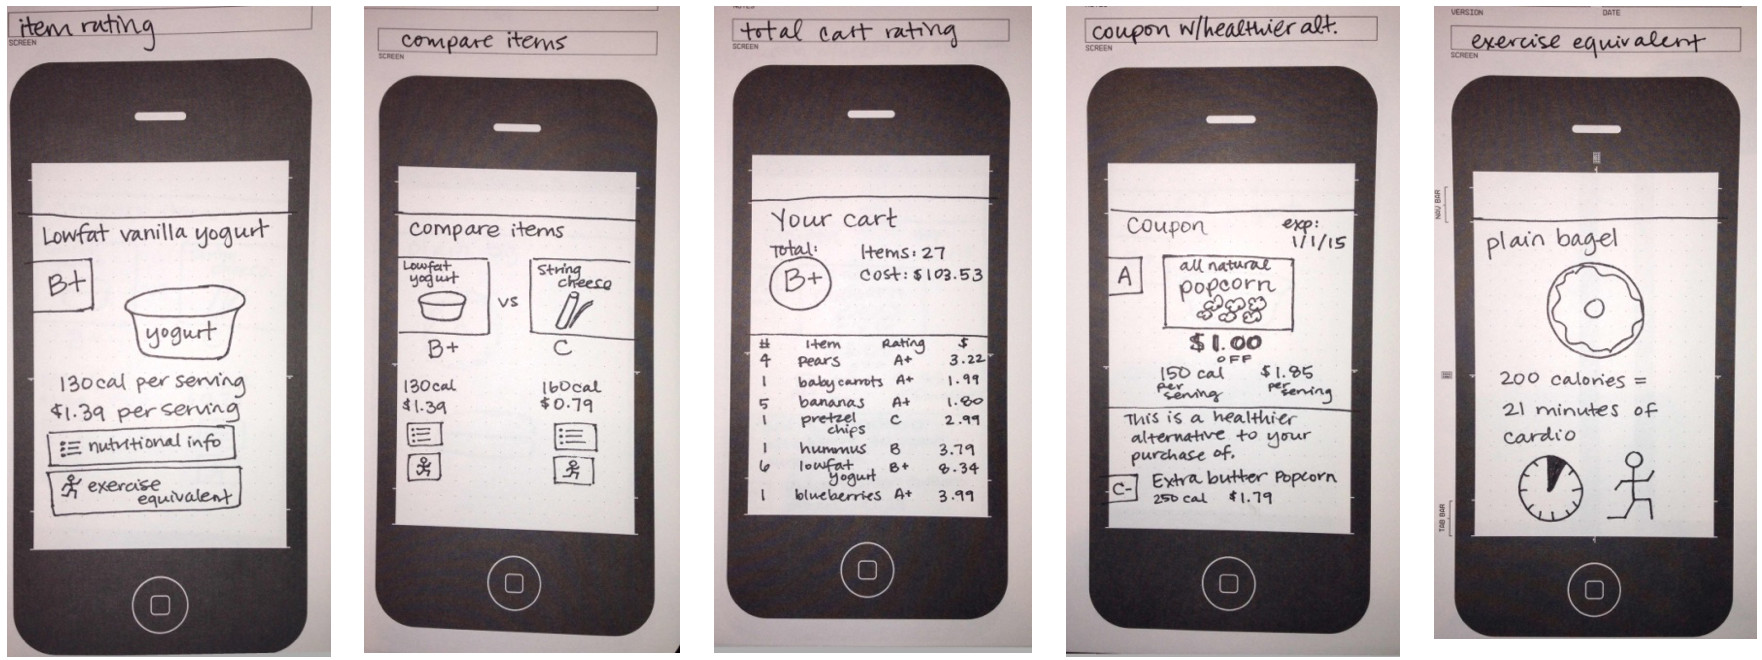 item rating
SCREEN
Lowfat vanilla yogurt
B+
yogurt
130 cal per serving
$1.39 per serving
nutritional info
exercise
equivalent
compare items
SCREEN
compare items
Lowfat
yogurt
vs
String
cheese
B+
C
130cal
160cal
$1.39
$0.79
NOTES
total cart rating
SCREEN
Your cart
Total:
B+
Items: 27
Cost: $103.53
# Item Rating $
4 pears A+ 3.22
1 baby carrots A+ 1.99
5 bananas A+ 1.80
1 pretzel C 2.99
chips
1 hummus B 3.79
6 lowfat B+ 8.34
yogurt
1 blueberries A+ 3.99
coupon w/healthier alt.
SCREEN
Coupon
exp:
1/1/15
A
all natural
popcorn
$1.00
OFF
150 cal $1.85
per per
serving serving
This is a healthier
alternative to your
purchase of.
C-
Extra butter Popcorn
250 cal $1.79
VERSION DATE
exercise equivalent
SCREEN
NAV BAR
plain bagel
200 calories =
21 minutes of
cardio
TAB BAR